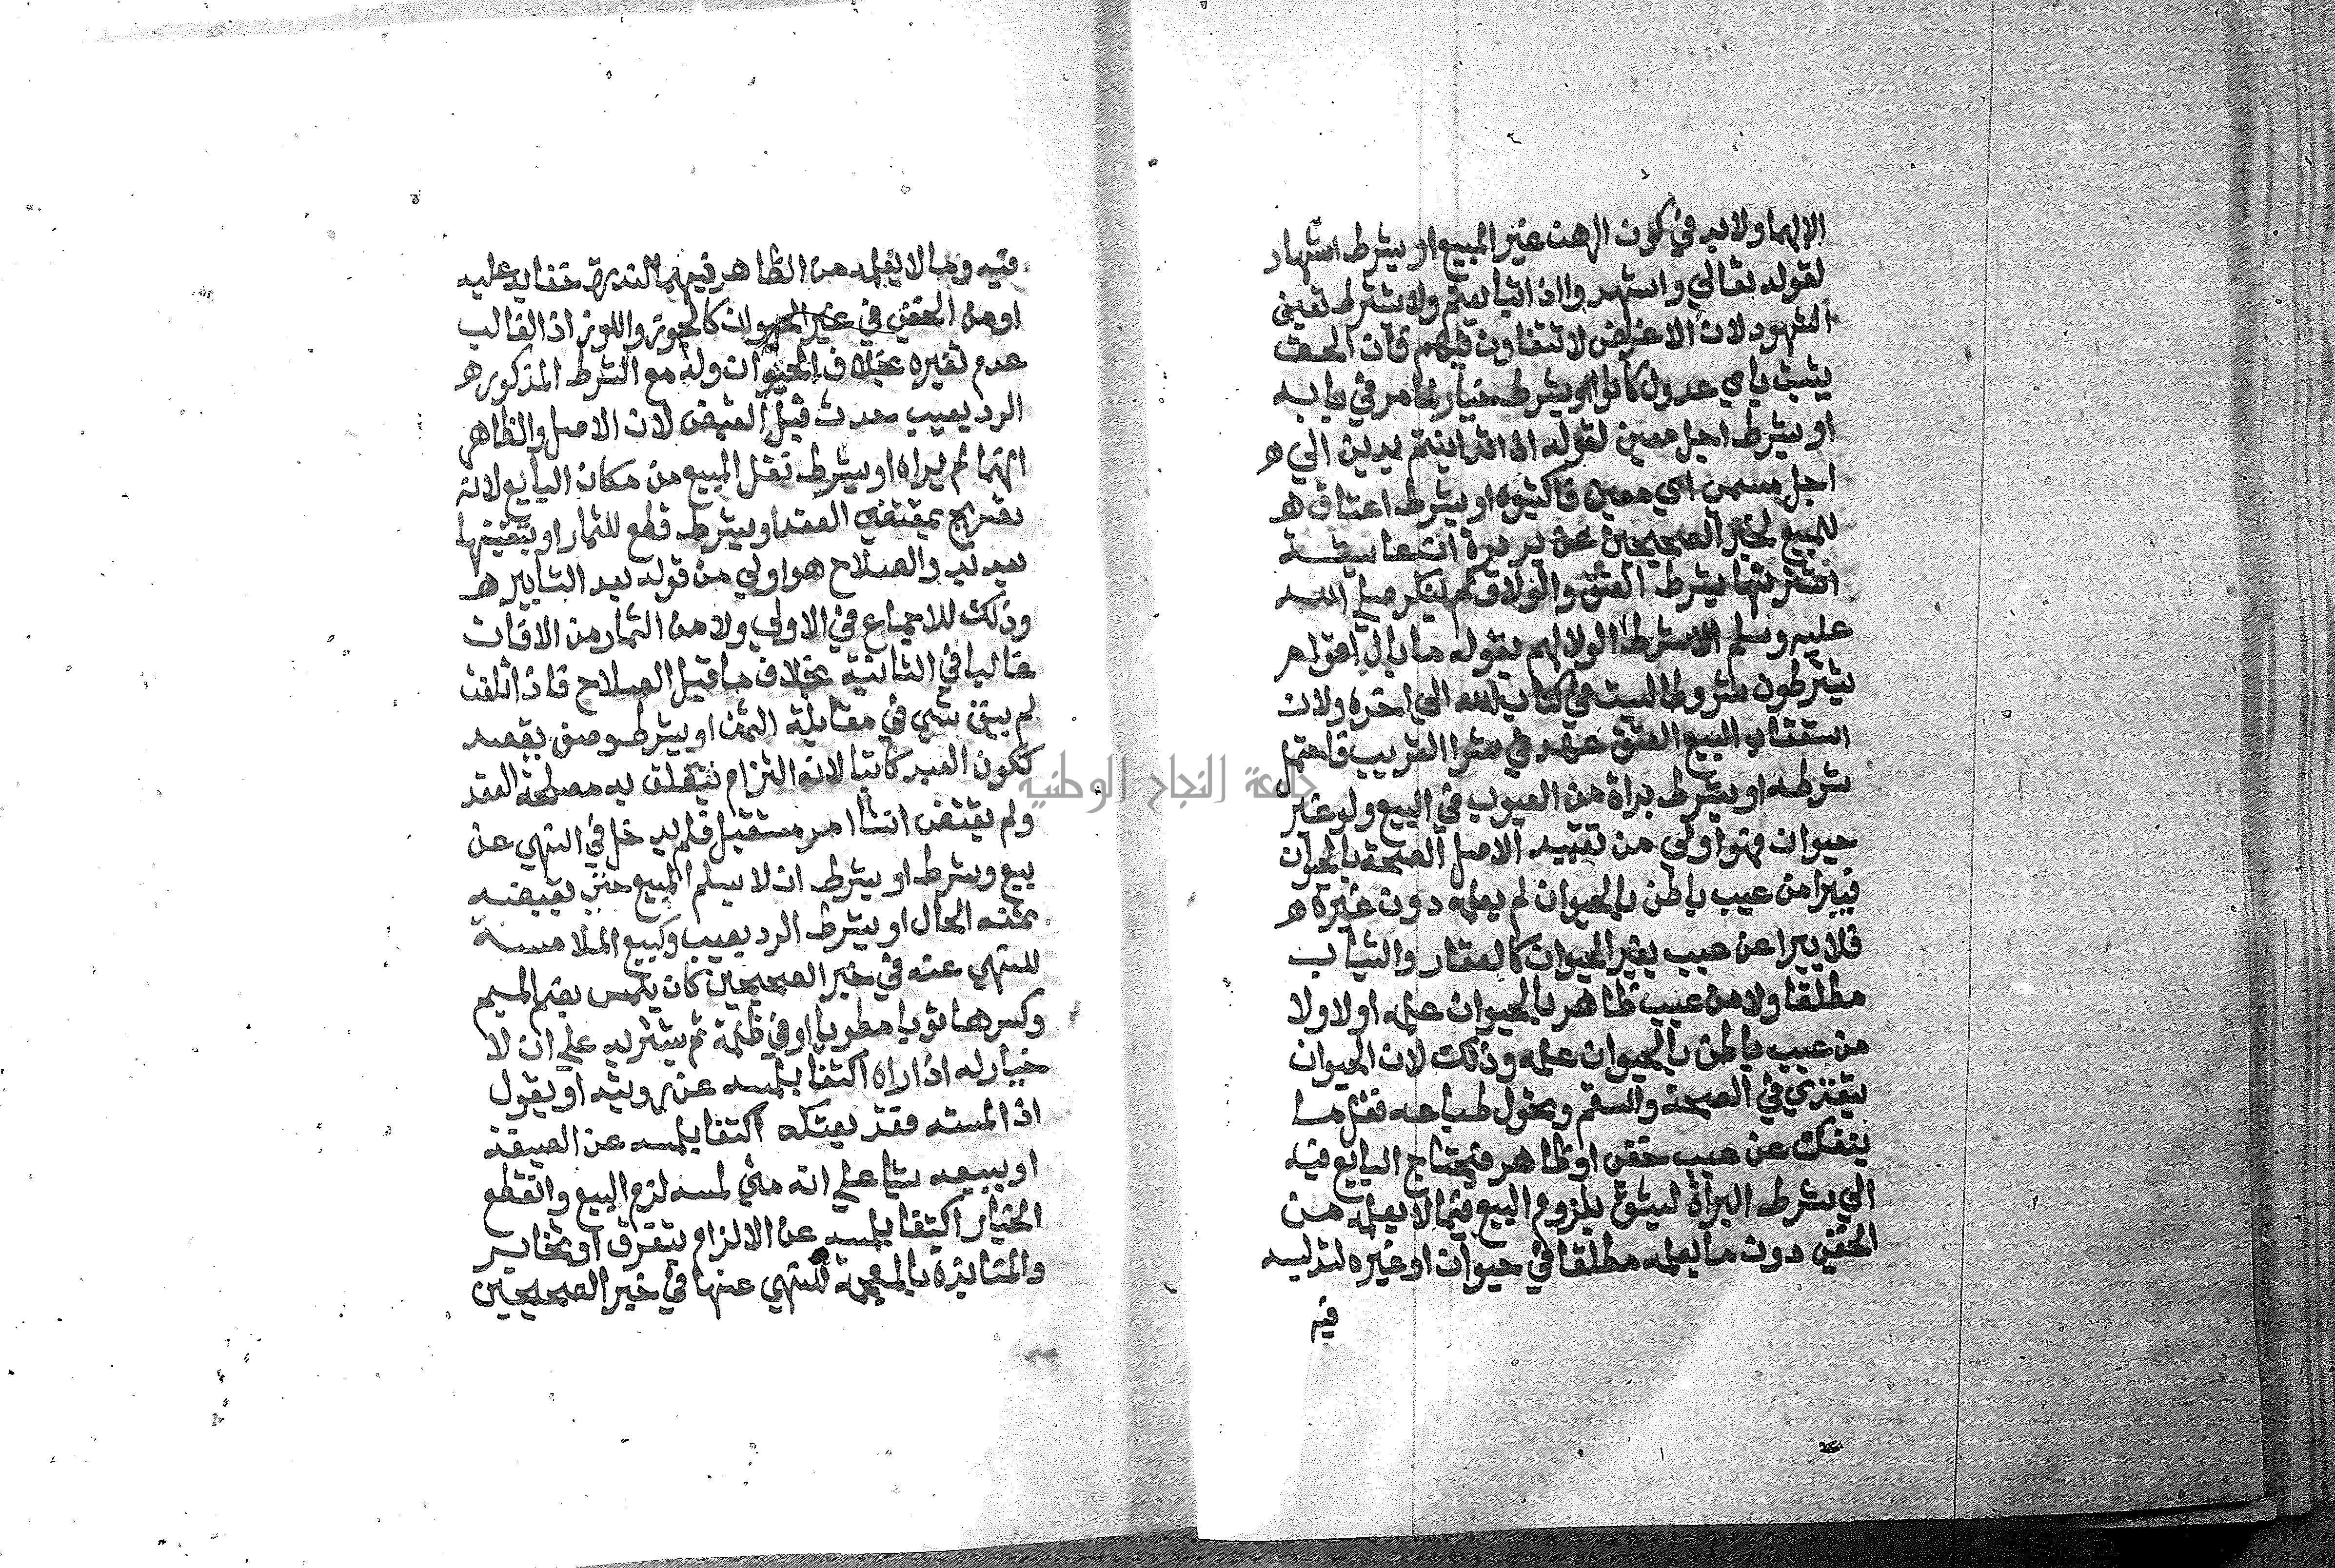 الا لهما ولا بد في كون الرهن غير المبيع او بشرط اشهاد
لقوله تعالي واشهدوا اذا تبايعتم ولا يشترط تعين
الشهود لان الاغراض لا تتفاوت فيهم فان الحق
يثبت باي عدول كانوا او بشرط خيار لما مر في بابه
او بشرط اجل معين لقوله اذا تداينتم بدين الي ه
اجل مسمي اي معين فاكتبوه او بشرط اعتاق ه
للمبيع لخبر الصحيحين عن بريرة ان عايشة
اشترتها بشرط العتق والولاء ولم ينكر صلي الله
عليه وسلم الا شرط الولا لهم بقوله ما بال اقوام
يشترطون شروطا ليست في كتاب الله الي اخره ولان
استعقاب البيع العتق عهد في شرا القريب فاحتمل
شرطه او بشرط براة من العيوب في البيع ولو غير
حيوان فهو اولي من تقييد الاصل الصحة بالحيوان
فيبرا من عيب باطن بالحيوان لم يعلمه دون غيره ه
فلا يبرا عن عيب بغير الحيوان كالعقار والثياب
مطلقا ولا من عيب ظاهر بالحيوان علمه اولا ولا
من عيب باطن بالحيوان علمه وذلك لان الحيوان
يتغذي في الصحة والسقم وتحول طباعه فقل ما
ينفك عن عيب خفي او ظاهر فيحتاج البايع فيه
الي شرط البراة ليثق بلزوم البيع فيما لا يعلمه من
الخفي دون ما يعلمه مطلقا في حيوان او غيره لتدليسه
فيه
فيه وما لا يعلمه من الظاهر فيهما لندرة خفايه عليه
او من الخفي في غير الحيوان كالجوز واللوز اذ الغالب
عدم تغيره بخلاف الحيوان وله مع الشرط المذكور ه
الرد بعيب حدث قبل القبض لان الاصل والظاهر
انهما لم يراه او بشرط نقل المبيع من مكان البايع لانه
تصريح بمقتضي العقد او بشرط قطع للثمار او تبقيتها
بعد بدو الصلاح هو اولي من قوله بعد التابير ه
وذلك للاجماع في الاولي ولامن الثمار من الافات
غالبا في الثانية بخلاف ما قبل الصلاح فاذا تلفت
لم يبق شي في مقابلة الثمن او بشرط وصف يقصد
ككون العبد كاتبا لانه التزام يتعلق به مصلحة العقد
ولم يقتض انشا امر مستقبل فلم يدخل في النهي عن
بيع وشرط او بشرط ان لا يسلم المبيع حتي يقبض
ثمنه الحال او بشرط الرد بعيب وكبيع الملامسة
للنهي عنه في خبر الصحيحين كان يلمس بضم الميم
وكسرها ثوبا مطويا او في ظلمة ثم يشتريه علي ان لا
خيار له اذا راه اكتفا بلمسه عن رويته او يقول
اذا لمسته فقد بعتكه اكتفا بلمسه عن الصيغة
او يبيعه شيا علي انه متي لمسه لزم البيع وانقطع
الخيار اكتفا بلمسه عن الالزام بتفرق او تخاير
والمنابذة بالمعجمة للنهي عنها في خبر الصحيحين
جامعة النجاح الوطنية